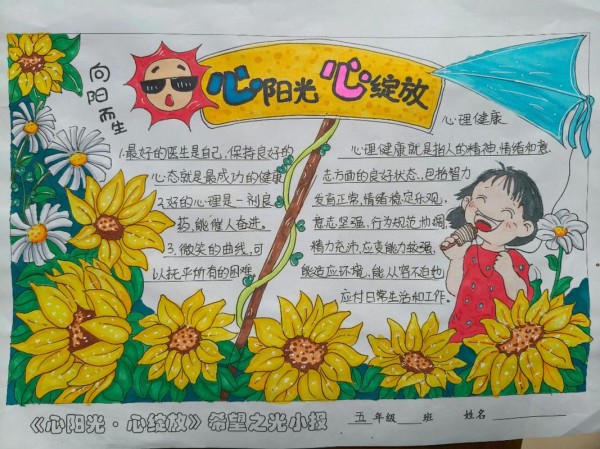 心阳光 心绽放
向阳而生
1.最好的医生是自己,保持良好的
心态就是最成功的健康
2.好的心理是一剂良
药,能催人奋进。
3.微笑的曲线,可
以托平所有的困难
心理健康
心理健康就是指人的精神、情绪和意
志方面的良好状态。包括智力
发育正常,情绪稳定乐观,
意志坚强,行为规范协调,
精力充沛,应变能力较强,
能适应环境,能从容不迫地
应付日常生活和工作。
《心阳光·心绽放》希望之光小报
五年级 班 姓名